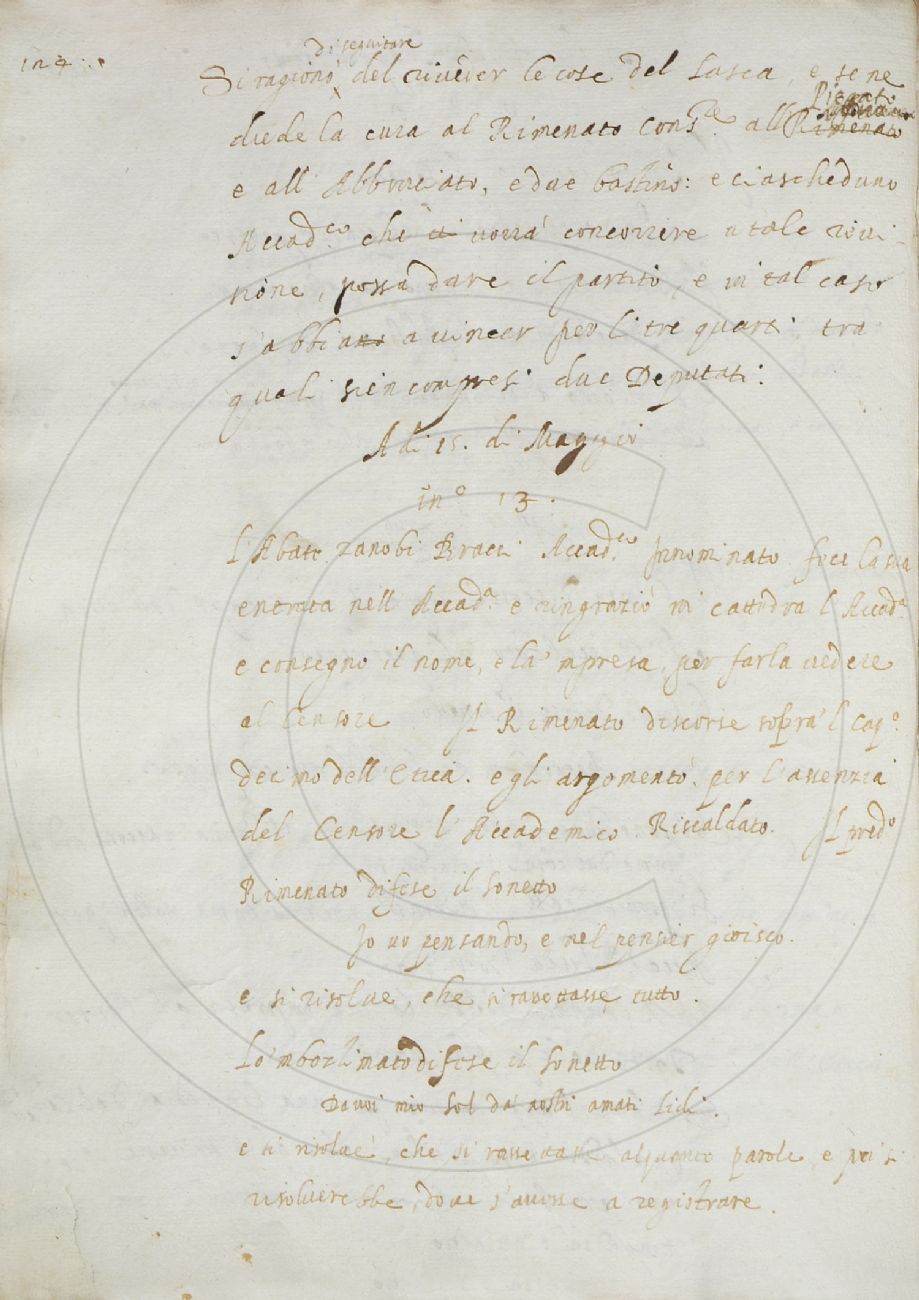 124
di seguitare
Si ragionò del riveder le cose del Lasca, e se ne
Piegato
diede la cura al Rimenato Cons.re all Rimenato
e all Abbruciato, e due bastino: e ciascheduno
Accad.co che vorrà concorrere a tale revi-
sione, possa dare il partito, e in tal caso
s'abbia a vincer per li tre quarti tra
quali sien compresi due Deputati.
A di 15. di Maggio
in n.o 13.
L'Abate Zanobi Bracci Accad.co innominato fece la sua
entrata nell Accad.a e ringraziò in cattedra l'Accad.a
e consegno il nome, e la 'mpresa, per farla vedere
al Censore Il Rimenato discorse sopra 'l cap.o
decimo dell'Etica. e gli argomentò per l'assenzia
del Censore l'Accademico Riscaldato. Il pred.o
Rimenato difese il sonetto
Io vo pensando, e nel pensier gioisco.
e si risolve, che si rassettasse tutto.
Lo 'mborlimato difese il sonetto
Da voi mio sol da' nostri amati lidi.
e si risolvè, che si rassettasse alquante parole, e poi si
risolverebbe, dove s'avesse a registrare.